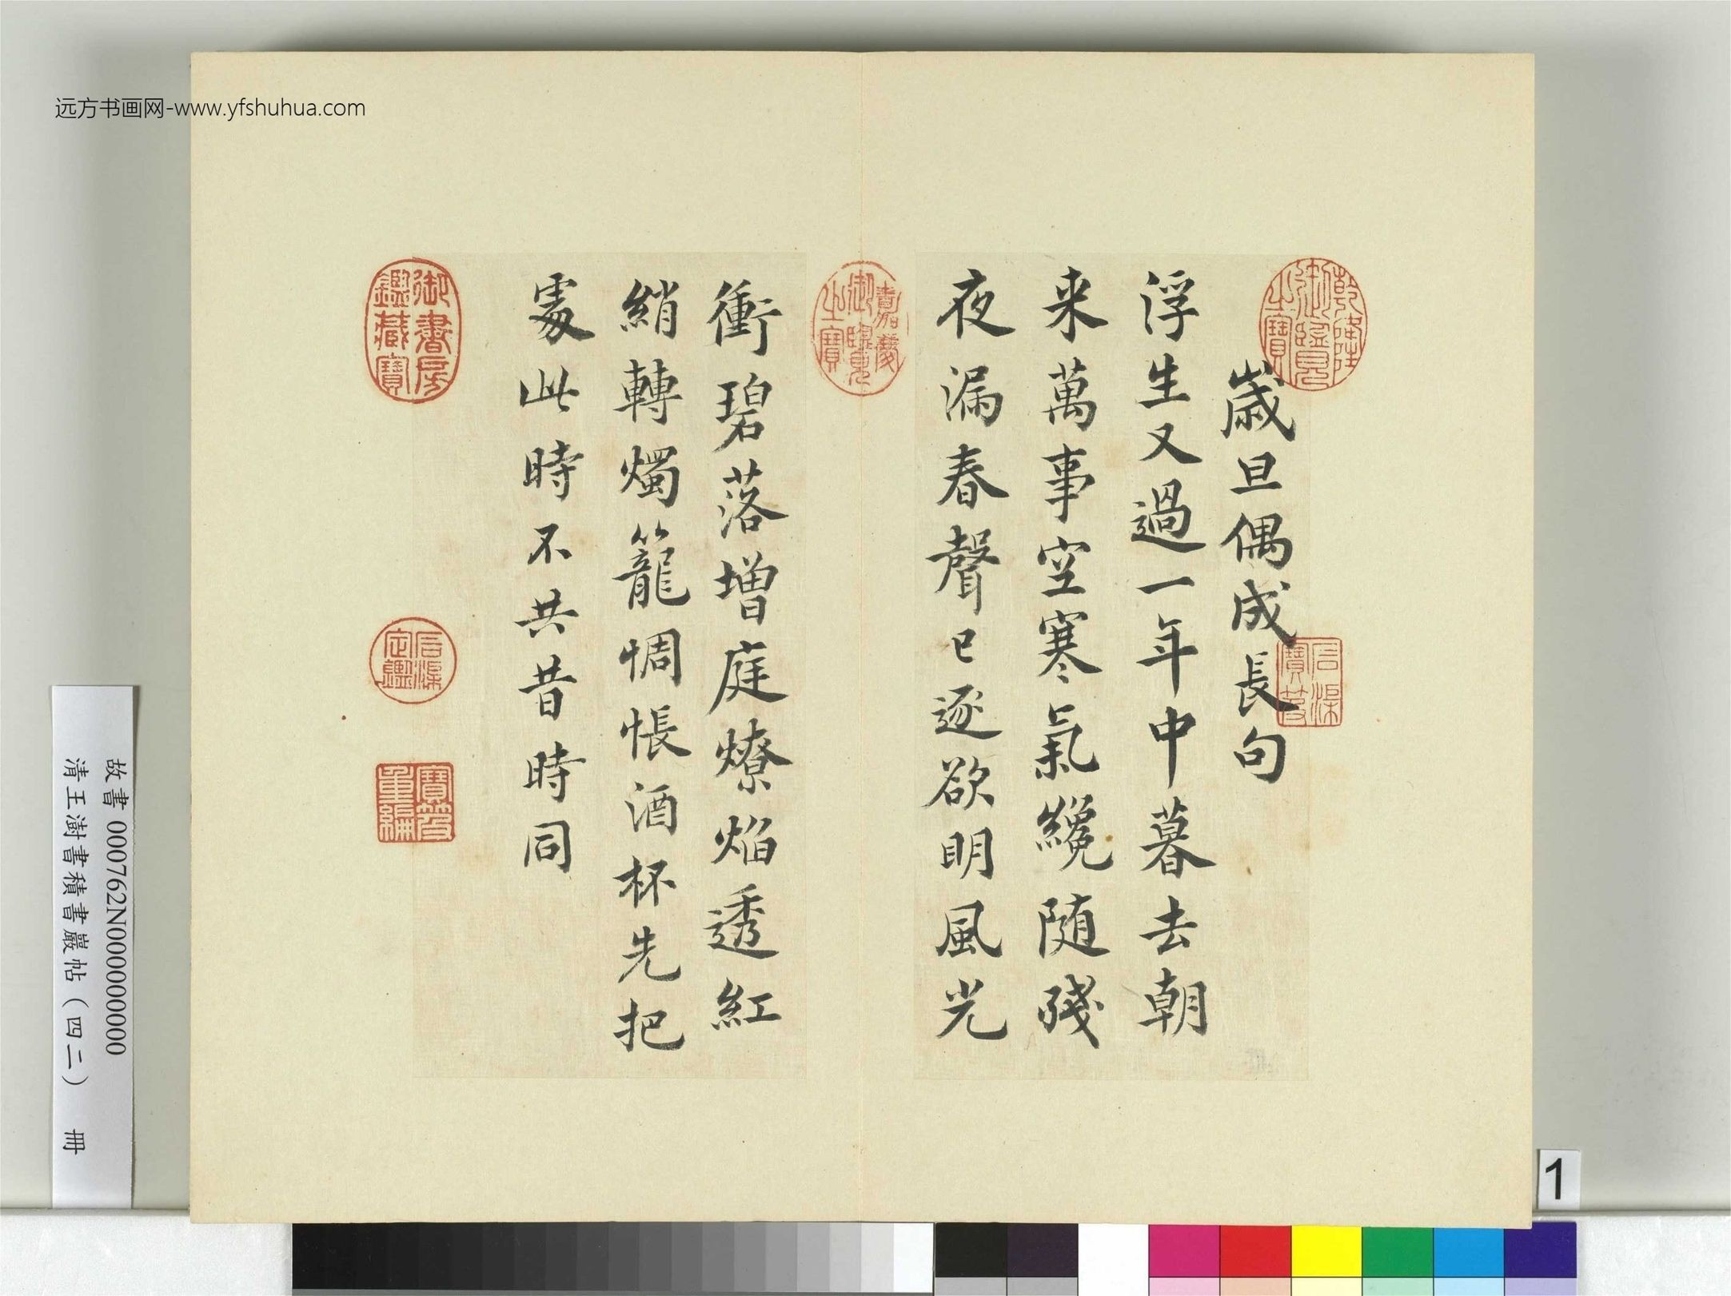 远方书画网-www.yfshuhua.com
歲旦偶成長句
浮生又過一年中暮去朝
来萬事空寒氣纔随殘
夜漏春聲已逐欲明風光
衝碧落增庭燎焰透紅
綃轉燭籠惆悵酒杯先把
處此時不共昔時同
乾隆御覽之寶
石渠寶笈
嘉慶御覽之寶
御書房鑑藏寶
石渠定鑑
寶笈重編
故書 000762N000000000
清王澍書積書巖帖（四二） 冊
1